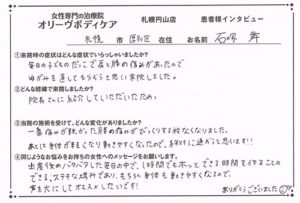 女性専門の治療院
オリーヴボディケア
札幌円山店
患者様インタビュー
札幌 市 西区 在住 お名前 石塚 昇
①来院時の症状はどんな症状でいらっしゃいましたか？
毎日の子どものだっこで肩と腰の痛みがあったので
ゆがみを直してもらおうと思い来院しました。
②どんな経緯で来院しましたか？
院長さんに紹介していただいたため。
③当院の施術を受けて、どんな変化がありましたか？
一番痛みが強かった腰の痛みがびっくりする程なくなりました。
あとは身体が軽くなり動きやすくなったので、絶対に通おうと思います!!
④同じようなお悩みをお持ちの方へのメッセージをお願いします。
出産後のバタバタした毎日の中で、1時間でもホッとできる時間を作ることの
できる、ステキな場所であり、もちろん身体も動きやすくなるので、
声を大にしてオススメしたいです!
ありがとうございました